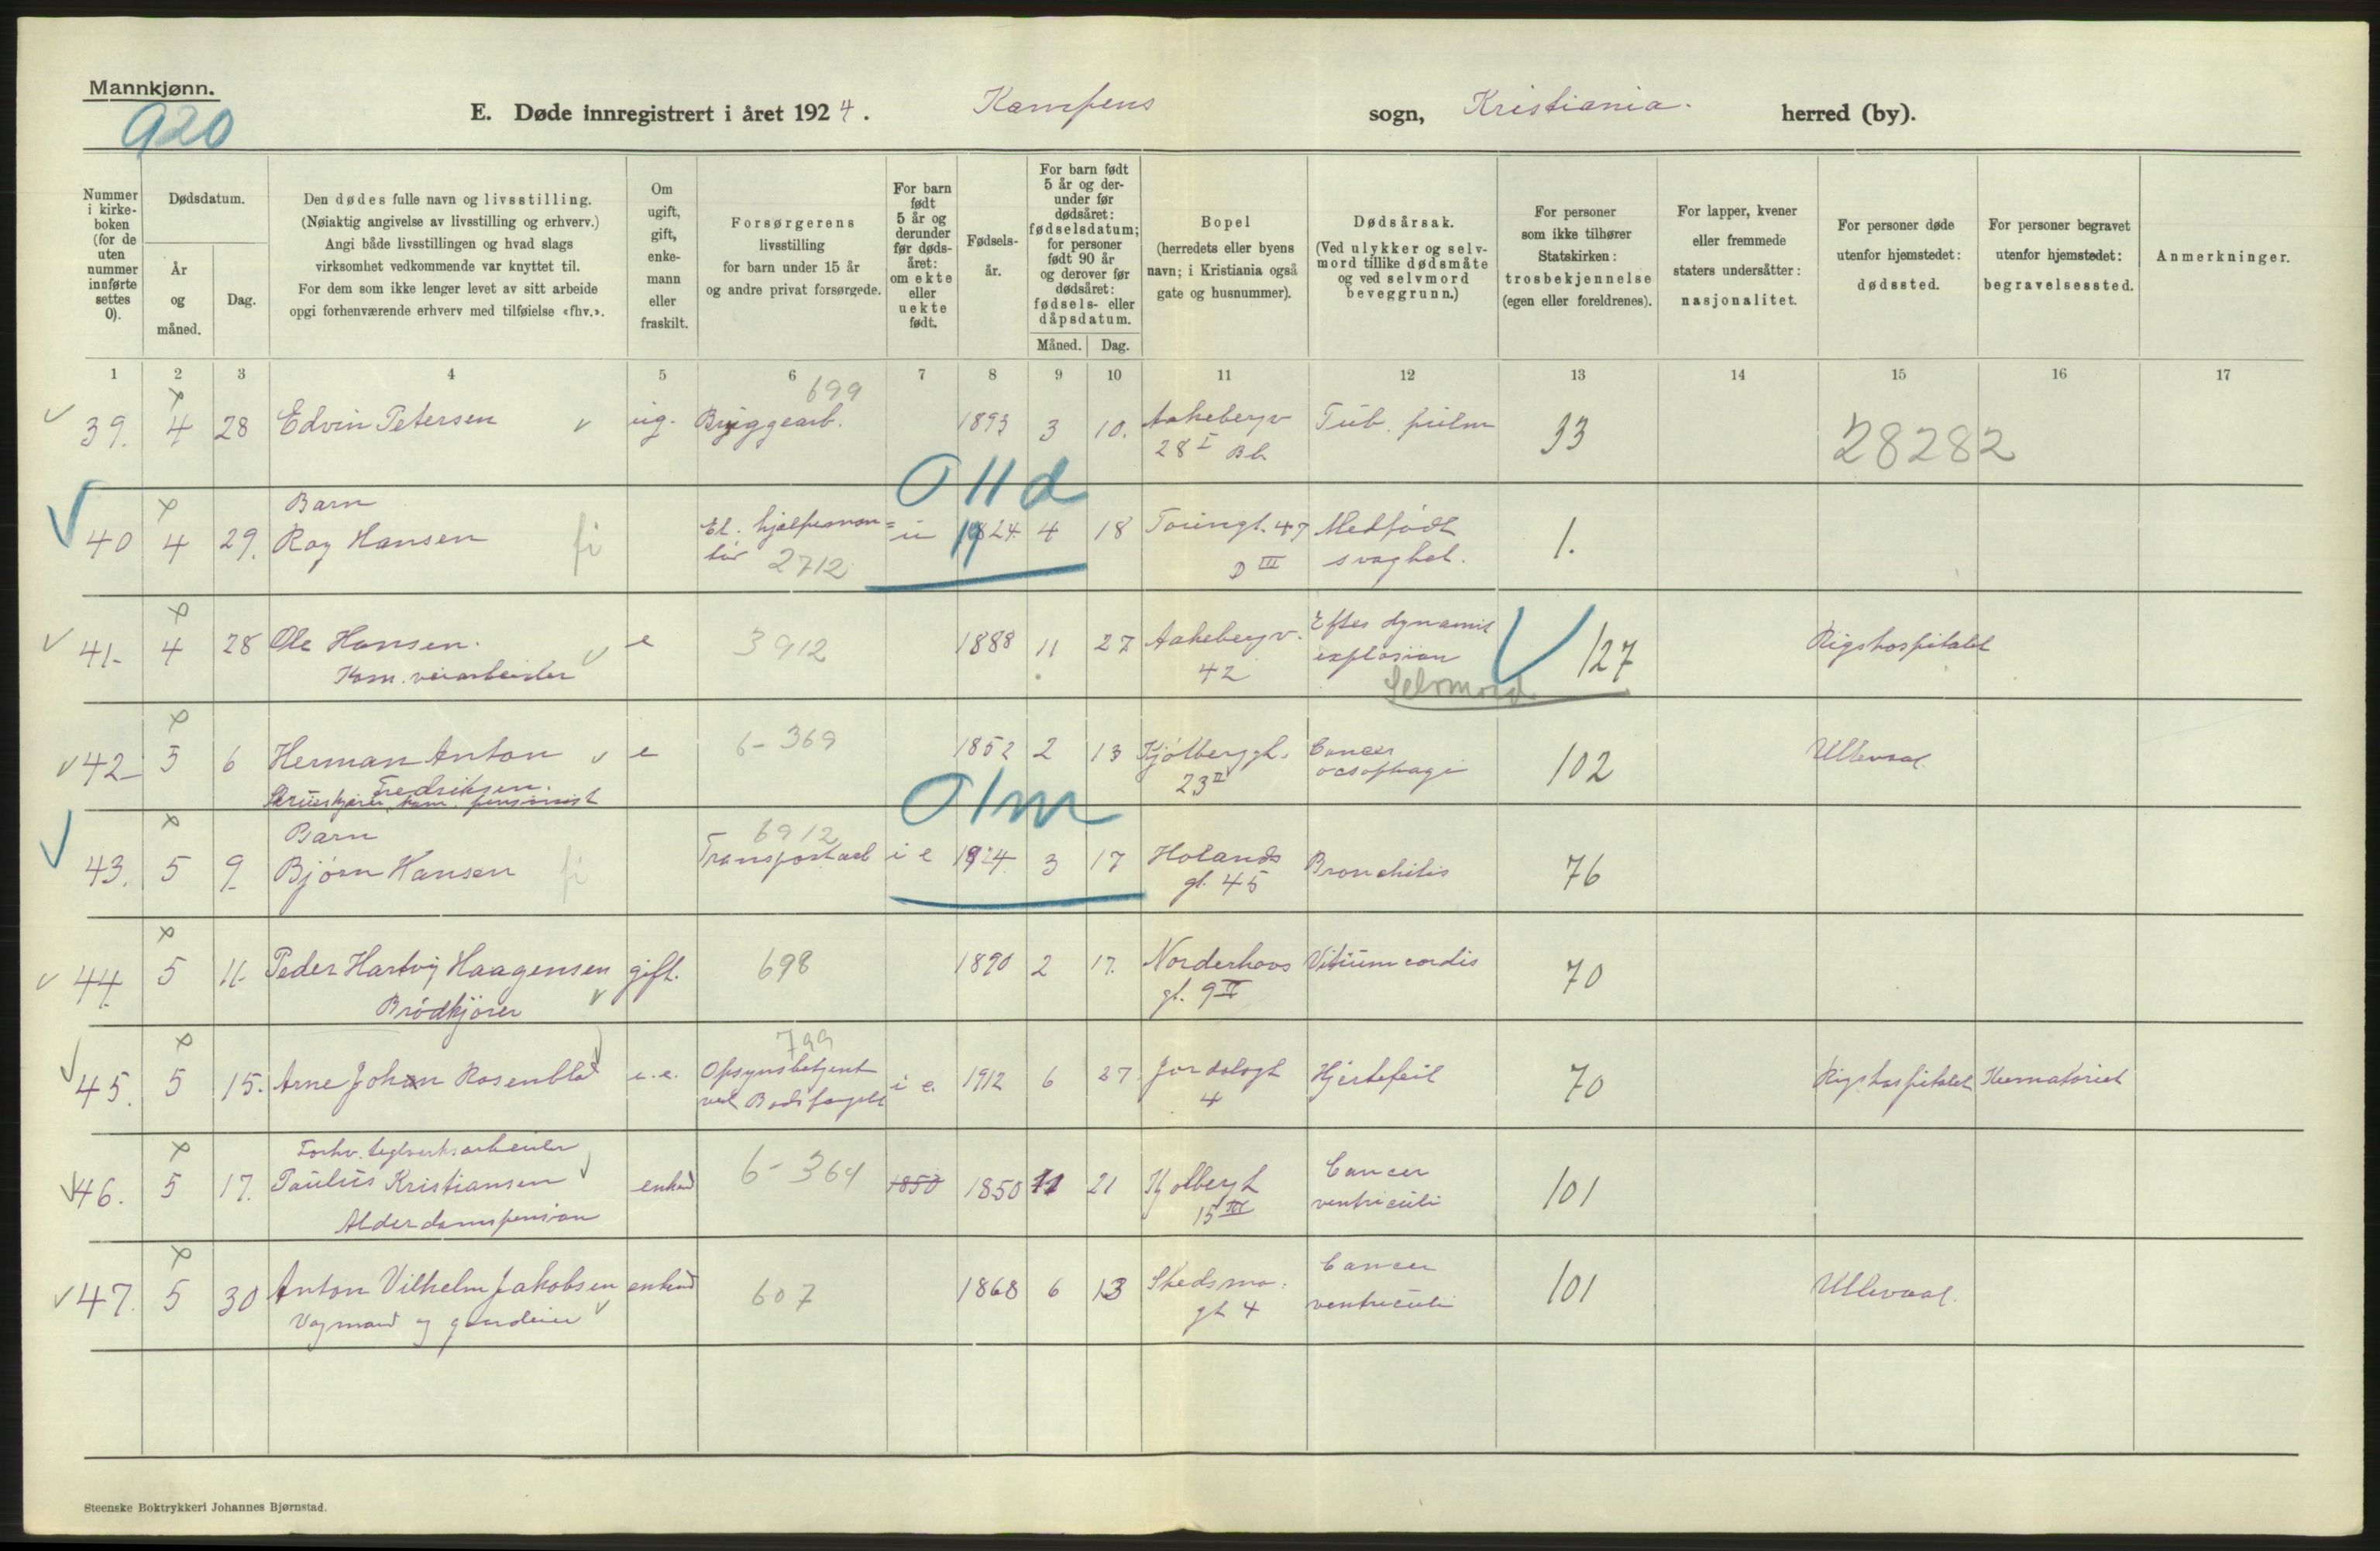 Mannkjønn.
920
E. Døde innregistrert i året 1924.
Kampens sogn, Kristiania. herred (by).
Nummer i kirke-boken (for de uten nummer innførte settes 0).
Dødsdatum.
År og måned.
Dag.
Den dødes fulle navn og livsstilling.
(Nøiaktig angivelse av livsstilling og erhverv.)
Angi både livsstillingen og hvad slags
virksomhet vedkommende var knyttet til.
For dem som ikke lenger levet av sitt arbeide
opgi forhenværende erhverv med tilføielse «fhv.».
Om ugift, gift, enke-mann eller fraskilt.
Forsørgerens
livsstilling
for barn under 15 år
og andre privat forsørgede.
For barn født 5 år og derunder før døds-året: om ekte eller uekte født.
Fødsels-år.
For barn født 5 år og der-under før dødsåret: fødselsdatum; for personer født 90 år og derover før dødsåret: fødsels- eller dåpsdatum.
Måned. Dag.
Bopel
(herredets eller byens
navn; i Kristiania også
gate og husnummer).
Dødsårsak.
(Ved ulykker og selv-
mord tillike dødsmåte
og ved selvmord
beveggrunn.)
For personer
som ikke tilhører
Statskirken:
trosbekjennelse
(egen eller foreldrenes).
For lapper, kvener
eller fremmede
staters undersåtter:
nasjonalitet.
For personer døde
utenfor hjemstedet:
dødssted.
For personer begravet
utenfor hjemstedet:
begravelsessted.
Anmerkninger.
1 2 3 4 5 6 7 8 9 10 11 12 13 14 15 16 17
699
39. 4 28 Edvin Petersen ug. Bryggearb. 1893 3 10. Aakebergv Tub. pulm 33 28282
28 I Bb
011d
Barn
40 4 29. Roy Hansen fi El. hjælpemon= u 1924 4 18 Töiengt. 47 Medfödt 1.
tör 2712 D III svaghet.
41. 4 28 Ole Hansen. e 3912 1888 11 27 Aakebergv. Efter dynamit 127 Rigshospitalet
Kom. veiarbeider 42 explosion
Selvmord
42 5 6 Herman Anton e 6-369 1852 2 13 Kjölberggt. Cancer 102 Ullevaal
Fredriksen. 23 II oesophagi
kom. pensionist
01m
Barn 6912
43. 5 9 Björn Hansen fi Transportarb i e 1924 3 17 Hölands Bronchitis 76
gt. 45
44. 5 11. Peder Hartvig Haagensen gift. 698 1890 2 17. Norderhovs Vitium cordis 70
Brödkjörer gt. 9 II
799
45. 5 15. Arne Johan Rosenblad Opsynsbetjent i e. 1912 6 27. Jordalsgt Hjertefeil 70 Rigshospitalet Krematoriet
ved Bodsfængslet 4
Forhv. teglverksarbeider
46. 5 17. Paulus Kristiansen enkem 6-364 1850 1850 11 21 Kjölbergt Cancer 101
Alderdomspension 15 III ventriculi
47. 5 30 Anton Vilhelm Jakobsen enkem 607 1868 6 13 Skedsmo. Cancer 101 Ullevaal.
Vognmand og gaardeier gt 4 ventriculi
Steenske Boktrykkeri Johannes Bjørnstad.